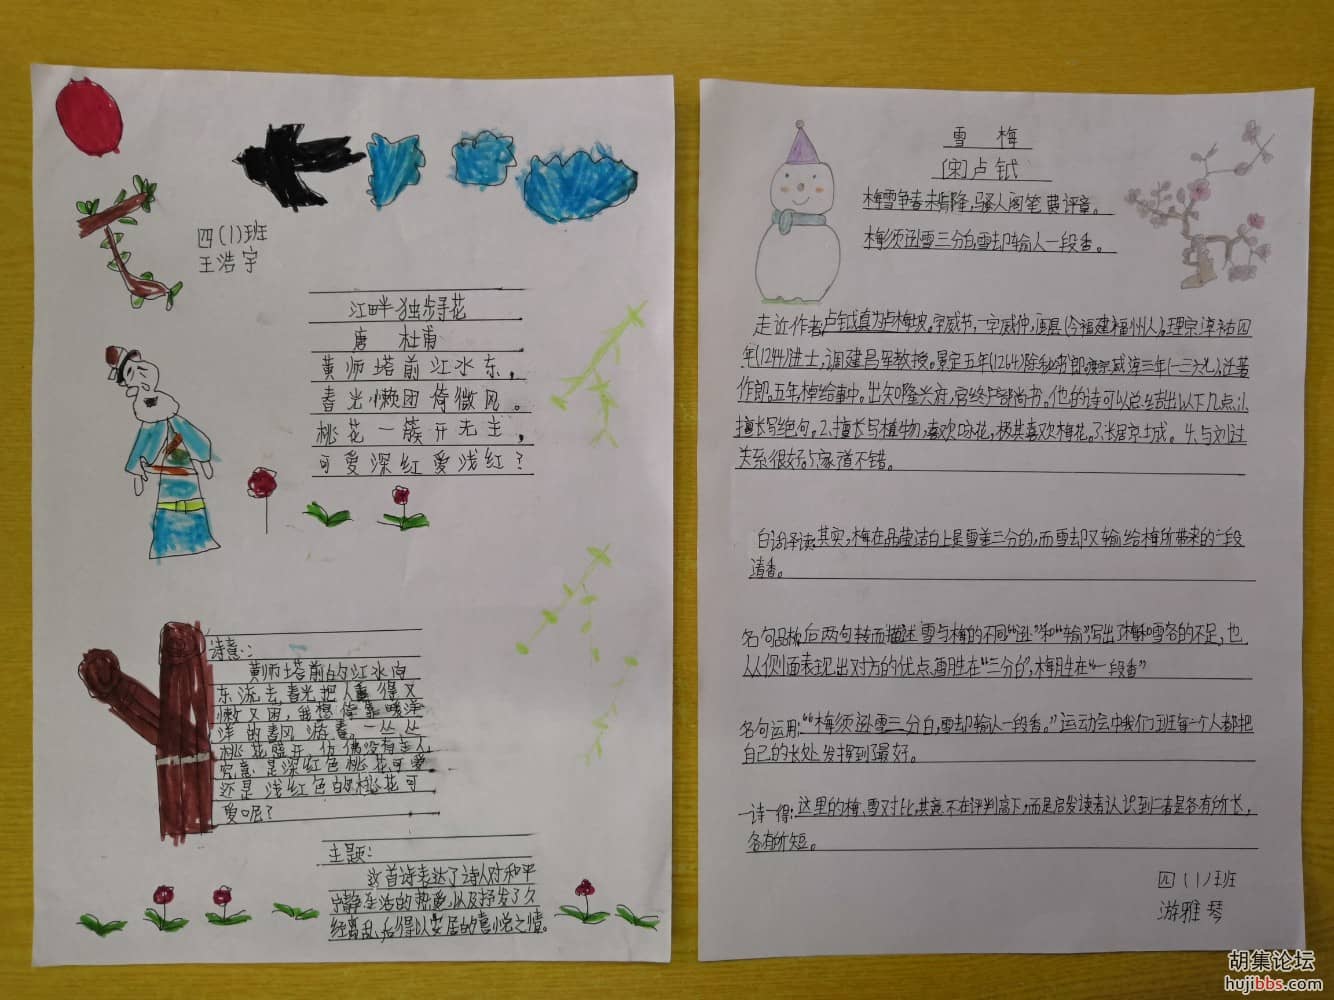 四(1)班
王浩宇
江畔独步寻花
唐 杜甫
黄师塔前江水东，
春光懒困倚微风。
桃花一簇开无主，
可爱深红爱浅红？
诗意：
黄师塔前的江水向
东流去，春光把人 得又
懒又困，我想倚靠暖洋
洋的春风游春。一丛丛
桃花盛开，仿佛没有主人
究竟是深红色桃花可爱
还是浅红色的桃花可
爱呢？
主题：
这首诗表达了诗人对和平
宁静生活的热爱，以及抒发了久
经离乱，后得以安居的喜悦之情。
雪 梅
[宋]卢钺
梅雪争春未肯降，骚人阁笔费评章。
梅须逊雪三分白，雪却输人一段香。
走近作者：卢钺真为卢梅坡。字威节，一字威仲，闽县(今福建福州人)。理宗淳祐四
年(1244)进士，调建昌军教授。景定五年(1264)除秘书郎。度宗咸淳三年(一二六七)，迁著
作郎。五年 给事中。出知隆兴府，官终户部尚书。他的诗可以总结出以下几点：1.
擅长写绝句。2、擅长写植物，喜欢咏花，极其喜欢梅花。3、长居京城。4、与刘过
关系很好。5家道不错。
白话译读：其实，梅在晶莹洁白上是雪差三分的，而雪却又输给梅所带来的一段
清香。
名句品析：后两句转而描述雪与梅的不同“逊”和“输”，写出了梅和雪各的不足，也
从侧面表现出对方的优点。雪胜在“三分白”，梅胜在“一段香”
名句运用：“梅须逊雪三分白，雪却输人一段香。”运动会中我们班每一个人都把
自己的长处发挥到了最好。
一诗一得：这里的梅、雪对比，其意不在评判高下，而是启发读者认识到二者是各有所长，
各有所短。
四(1)班
游雅琴
胡集论坛
hujibbs.com